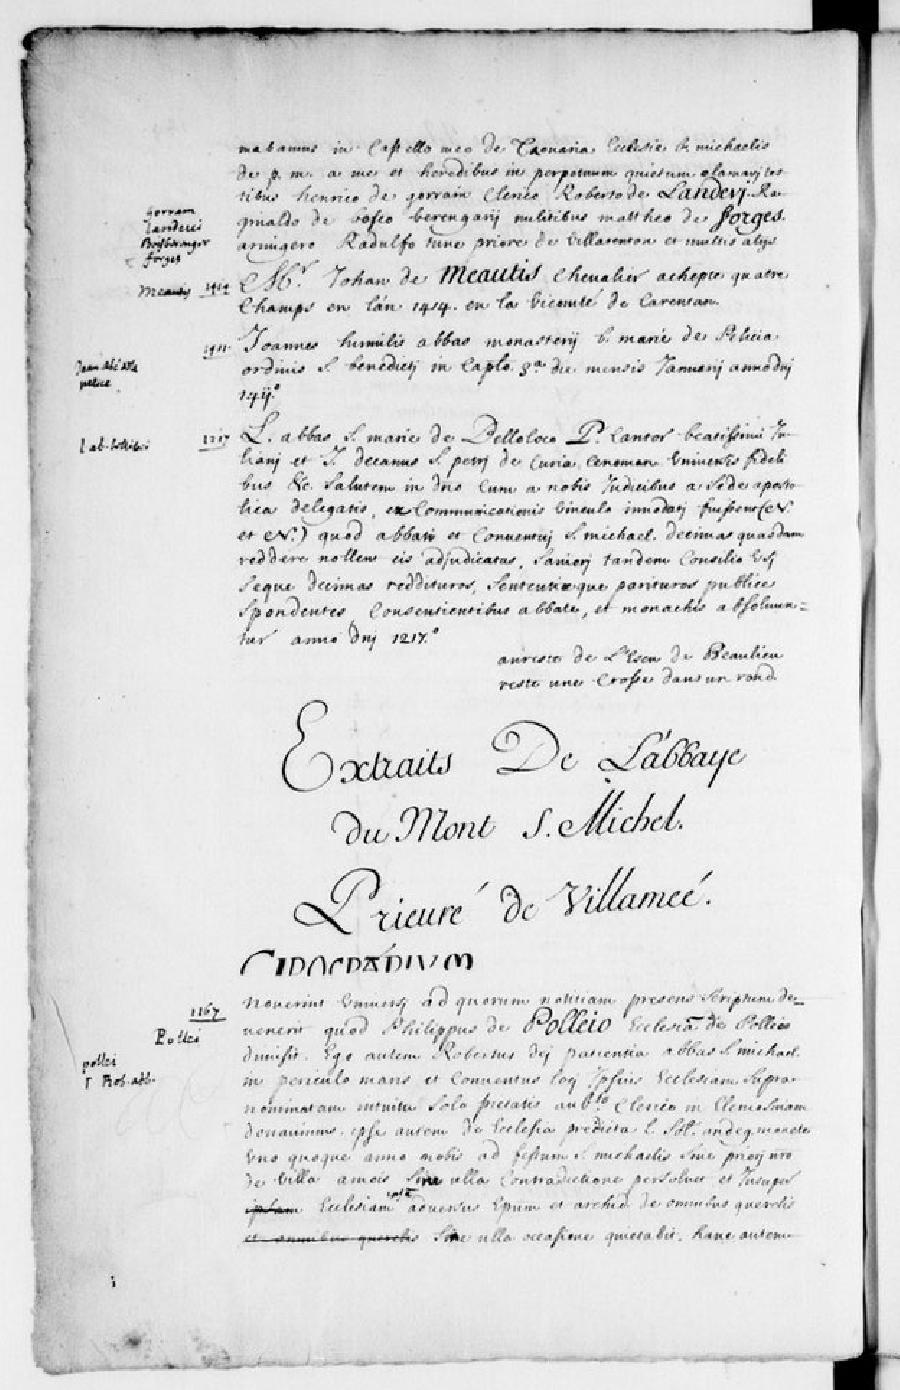 mabamus in Castello meo de Taonaria Ecclesie b. michaelis
de p. m. a me et heredibus in perpetuum quietum clamavi tes
tibus henrico de gorrain Clerico Roberto de Landevj. Ra
ginaldo de bosco berengarij militibus mattheo de forges.
armigero Radulfo tunc priore de Villarenton et multis alijs
Gorram
Landevi
Bosberanger
forges
Meautis 1414
Mr. Johan de Meautis Chevalier achepte quatre
Champs en l'an 1414. en la Vicomté de Carentan.
Joannes humilis abbas monasterij b. marie de Pelicia
ordinis S. benedicti in Caplo 3a die mensis Januarij anno dnj
L. abbas S. marie de Belloloco P. Cantor beatissimi Ju
lianj et J. decanus S. petrj de Curia Cenoman. Universis fideli
bus &c. Salutem in dno Cum a nobis Judicibus a Sede aposto
lica delegatis, ex Communicationis Vinculo innodatj fuissent (N.
et N.) quod abbati et Conventuj S. michael. decimas quasdam
reddere nollent eis adjudicatas, Saniorj tandem Consilio Usj
Seque decimas reddituros, Sententiæque parituros publice
Spondentes, Consentientibus abbate, et monachis absolvun=
tur anno dnj 1217.o
1217
au reste de L'Escu de Beaulieu
reste une Crosse dans un rond
Extraits De L'abbaye
du Mont S. Michel.
Prieuré de Villameé.
1167
Polleï
Noverint Universj ad quorum notitiam presens Scriptum de_
venerit quod Philippus de Polleio Ecclesiã de Polleio
dimisit. Ego autem Robertus dej patientia abbas S. michael.
in periculo maris et Conventus locj Ipsius Ecclesiam Supra
nominatam intuitu Solo pietatis Clerico in Elemosinam
donavimus. ipse autem de Ecclesia predicta andeg. monete
Uno quoque anno nobis ad festum S. michaelis Sive priorj nro
de Villa ameis Sine ulla Contradictione persolvet et Insuper
ipsam Ecclesiam ipse adversus Epum et archid. de omnibus querelis
et omnibus querelis Sine ulla occasione quietabit. hanc autem